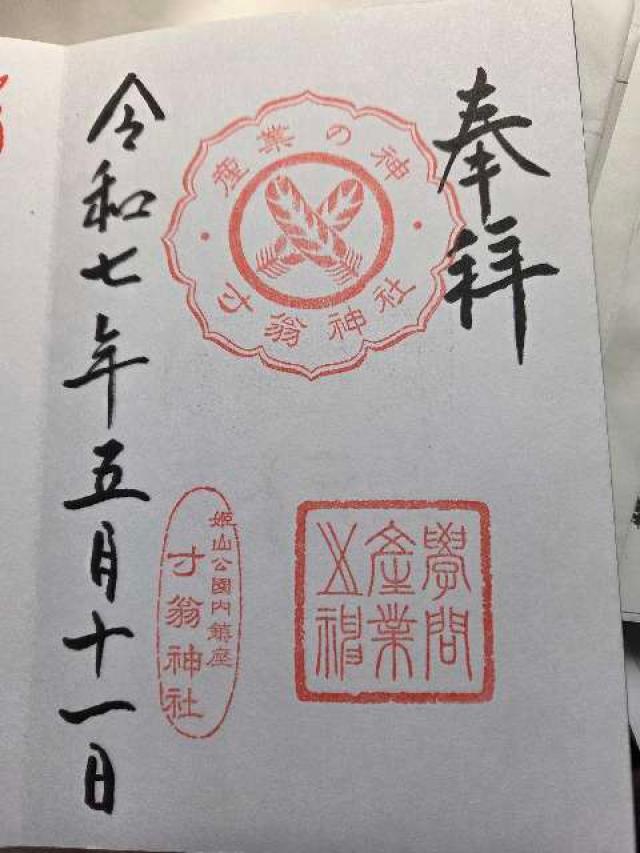 奉拝
産業の神
寸翁神社
學問
產業
之神
姫山公園内鎮座
寸翁神社
令和七年五月十一日